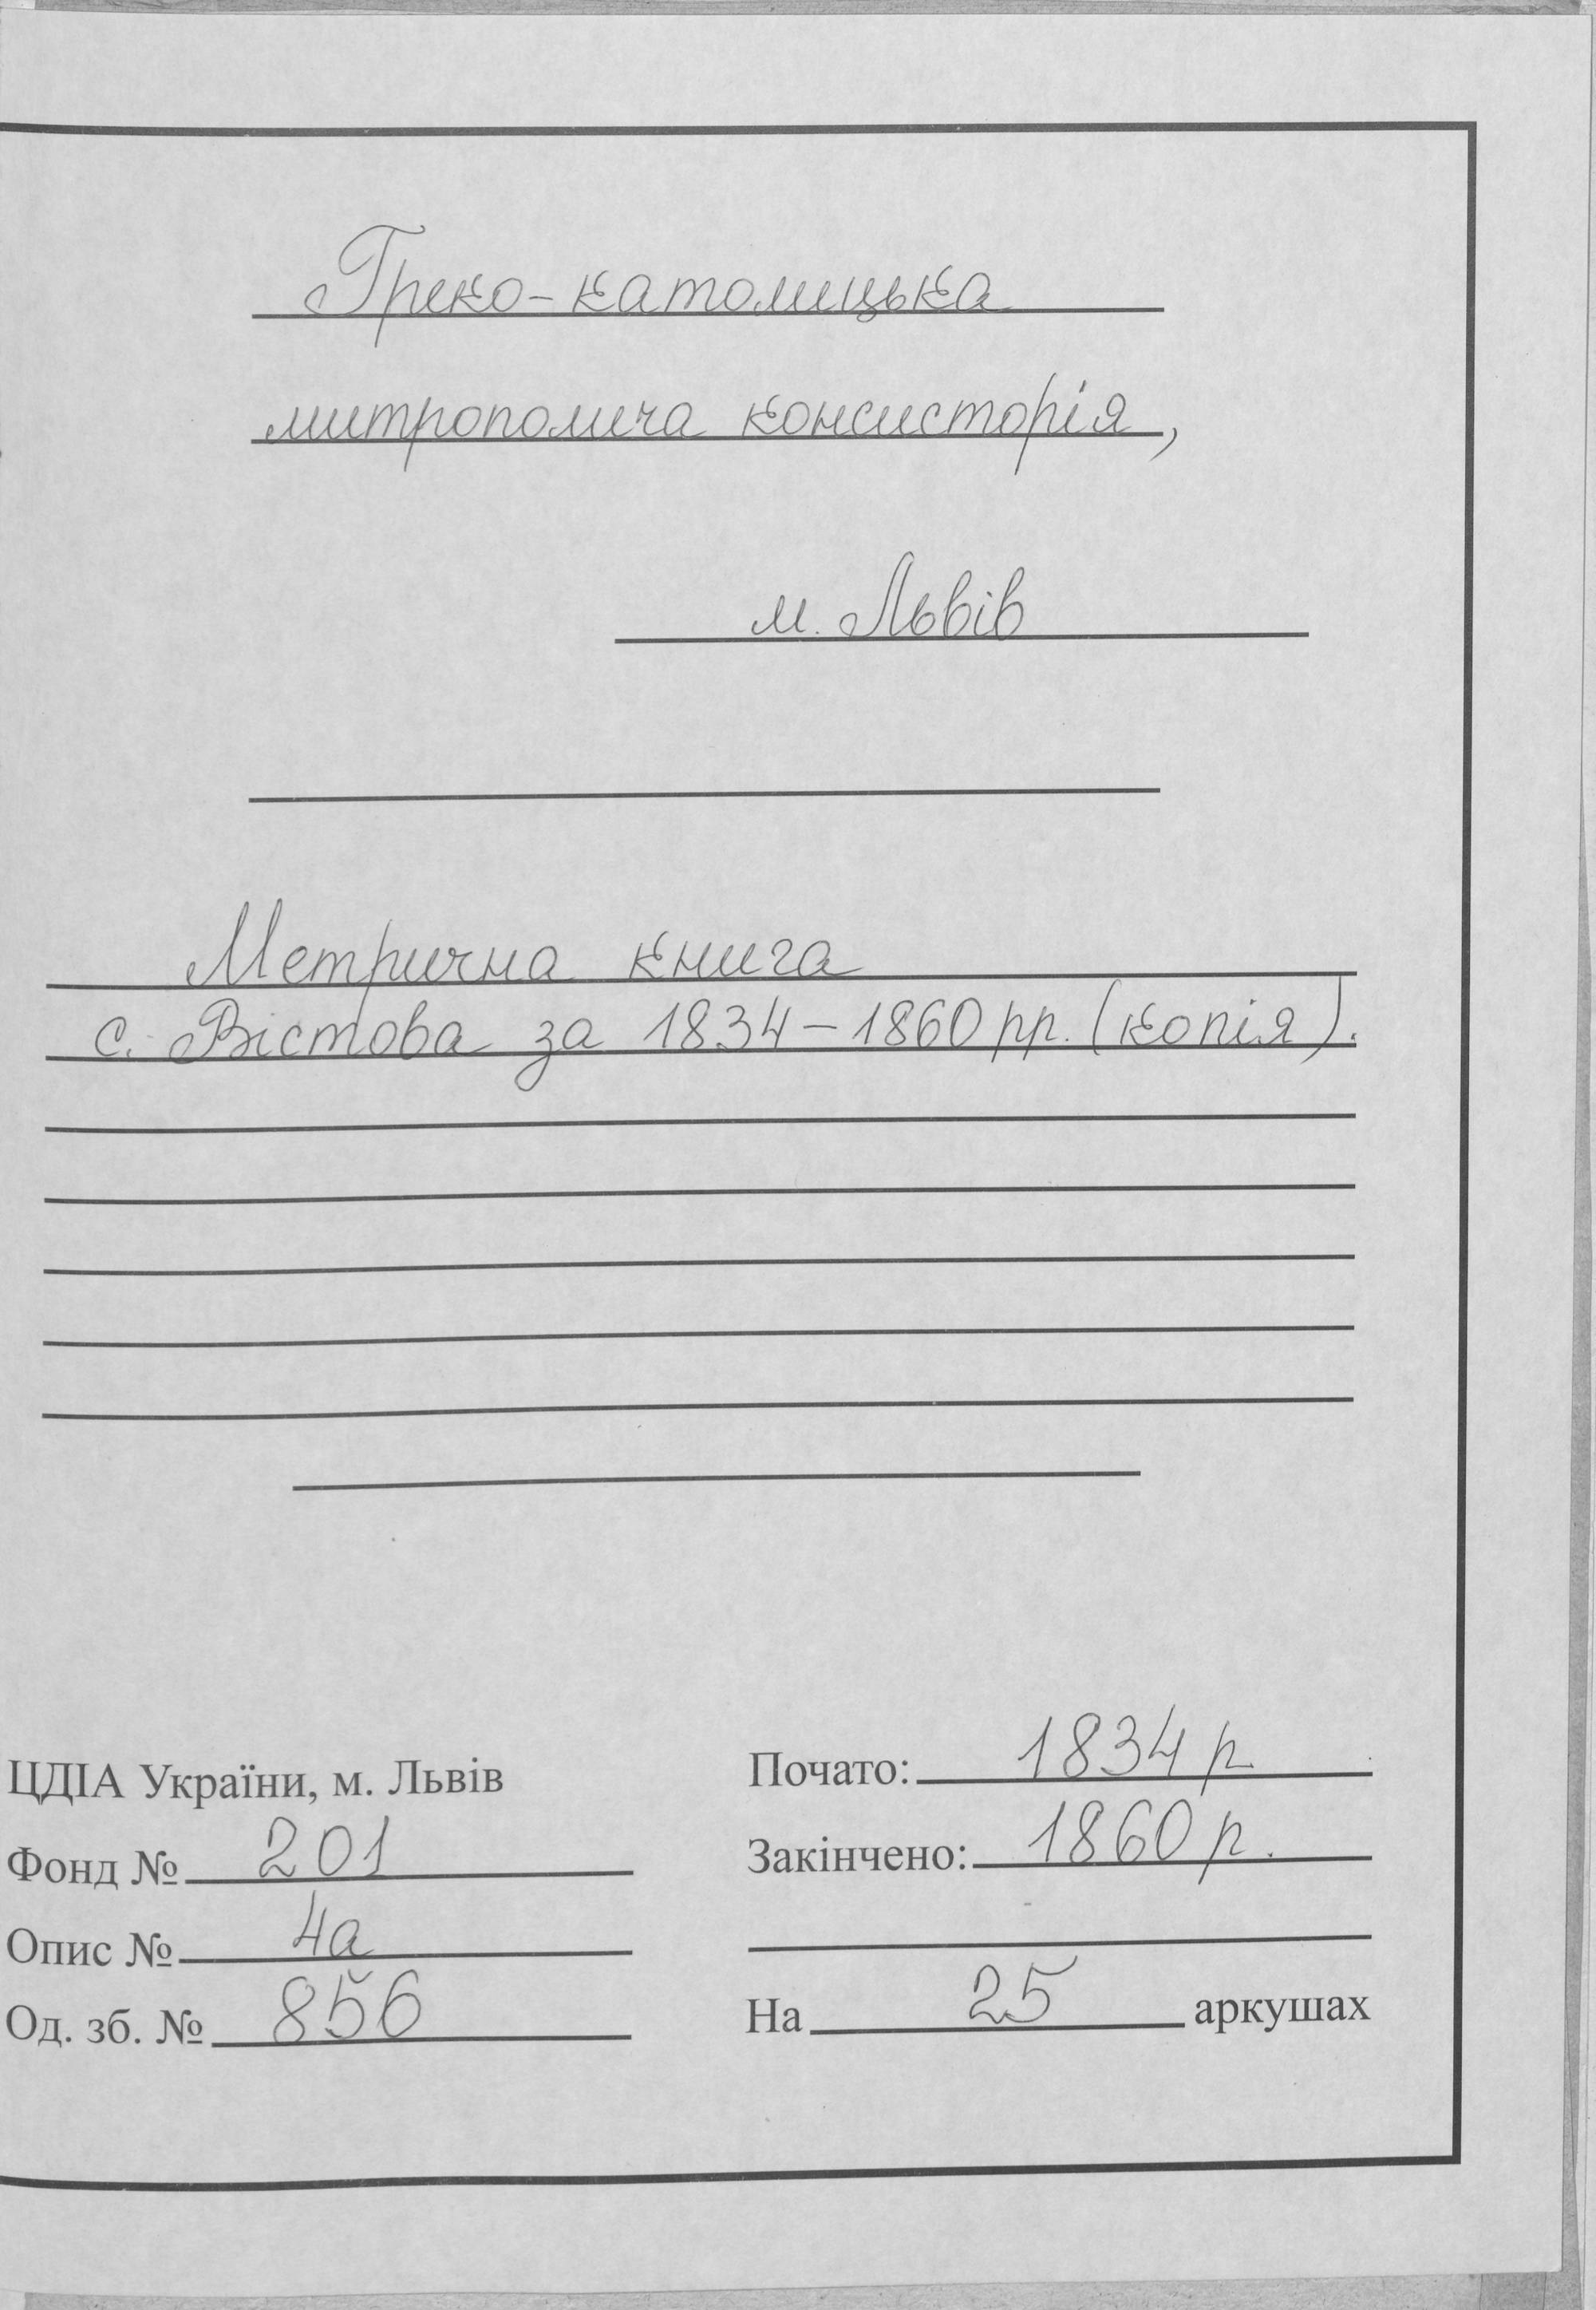 Греко-католицька
митрополича консисторія,
м. Львів
Метрична книга
с. Вістова за 1834-1860 рр. (копія).
ЦДІА України, м. Львів
Фонд № 201
Опис № 4а
Од. зб. № 856
Почато: 1834 р
Закінчено: 1860 р.
На 25 аркушах